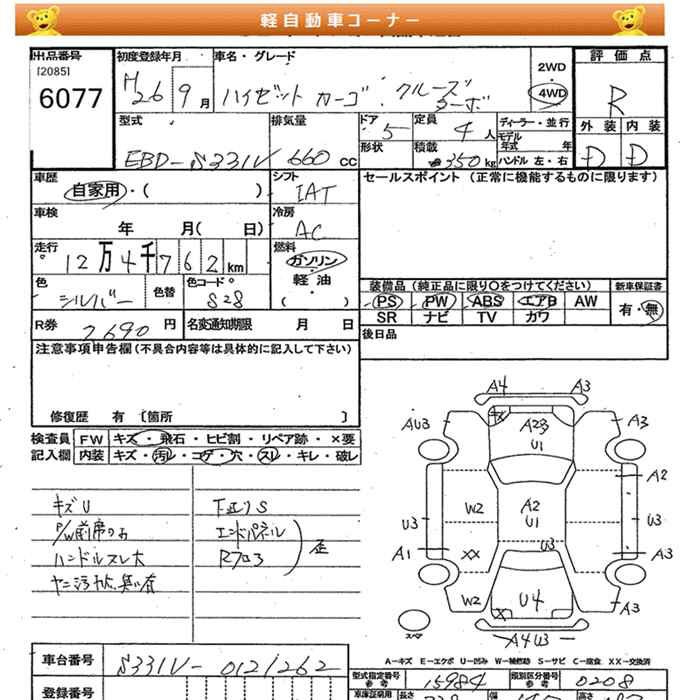 軽自動車コーナー
出品番号
[2085]
6077
初度登録年月
H26 9月
車名・グレード
ハイゼット カーゴ クルーズターボ
2WD
4WD
評価点
R
型式
EBD-S331V
排気量
660 cc
ドア
5
形状
定員
4人
積載
350 kg
ディーラー・並行
モデル年式 年
ハンドル 左・右
外装 内装
D D
車歴
自家用・( )
シフト
IAT
セールスポイント (正常に機能するものに限ります)
車検
年 月( 日)
冷房
AC
走行
12万4千762km
燃料
ガソリン・軽油
( )
色
シルバー
色替
色コード
S28
装備品 (純正品に限り○をつけてください)
新車保証書
PS PW ABS エアB AW
SR ナビ TV カワ
有・無
R券
2,690 円
名変通知期限 月 日
後日品
注意事項申告欄 (不具合内容等は具体的に記入して下さい)
修復歴 有 [箇所 ]
検査員記入欄
FW キズ・飛石・ヒビ割・リペア跡・×要
内装 キズ・汚レ・コゲ・穴・スレ・キレ・破レ
キズU
P/W前席のみ
ハンドルスレ大
ヤニ汚れ、臭い有
下廻りS
エンドパネル
Rフロ3
歪
A4 A3
AU3 A23 U1 A3
A2
W2 A2 U1
U3 U3
A1 XX U3 A3
W2 X U4 A3
スペア
A4U3
車台番号
S331V-0121262
A-キズ E-エクボ U-凹み W-補修跡 S-サビ C-腐食 XX-交換済
型式指定番号 参考
15984
類別区分番号 参考
0208
登録番号
車庫証明用
長さ
幅
高さ